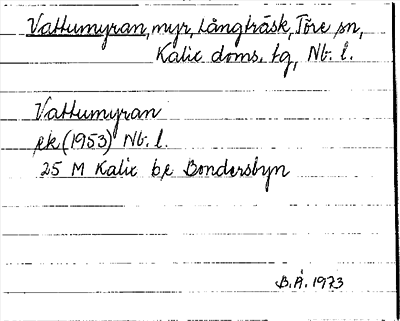 Vattumyran, myr, Långträsk, Töre sn,
Kalix doms. tg, Nb. l.
Vattumyran
ek (1953) Nb. l.
25 M Kalix bx Bondersbyn
B.Å. 1973